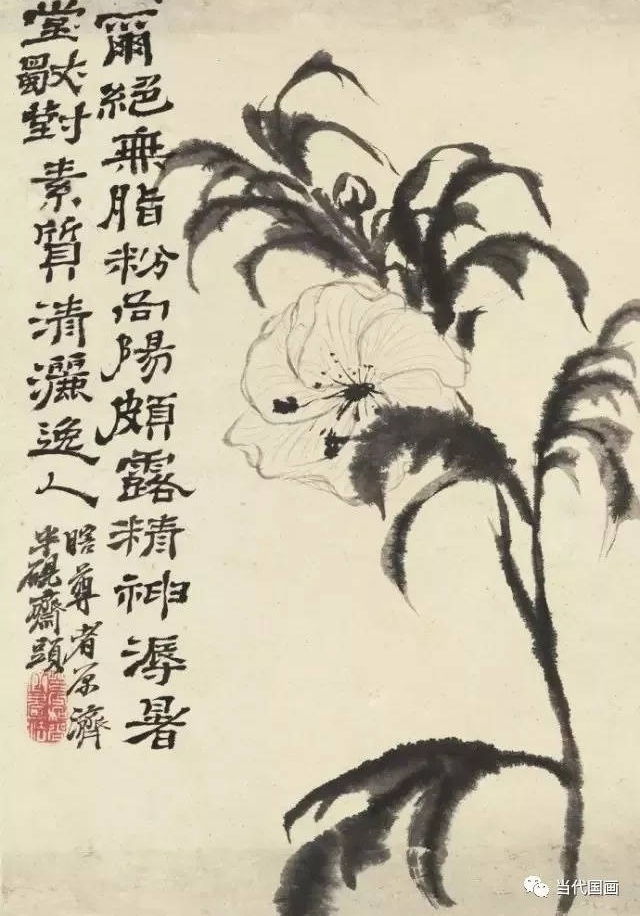 爾絕無脂粉向陽頗露精神溽暑
堂獨對素質清灑逸人
瞎尊者原濟
半硯齋題
当代国画